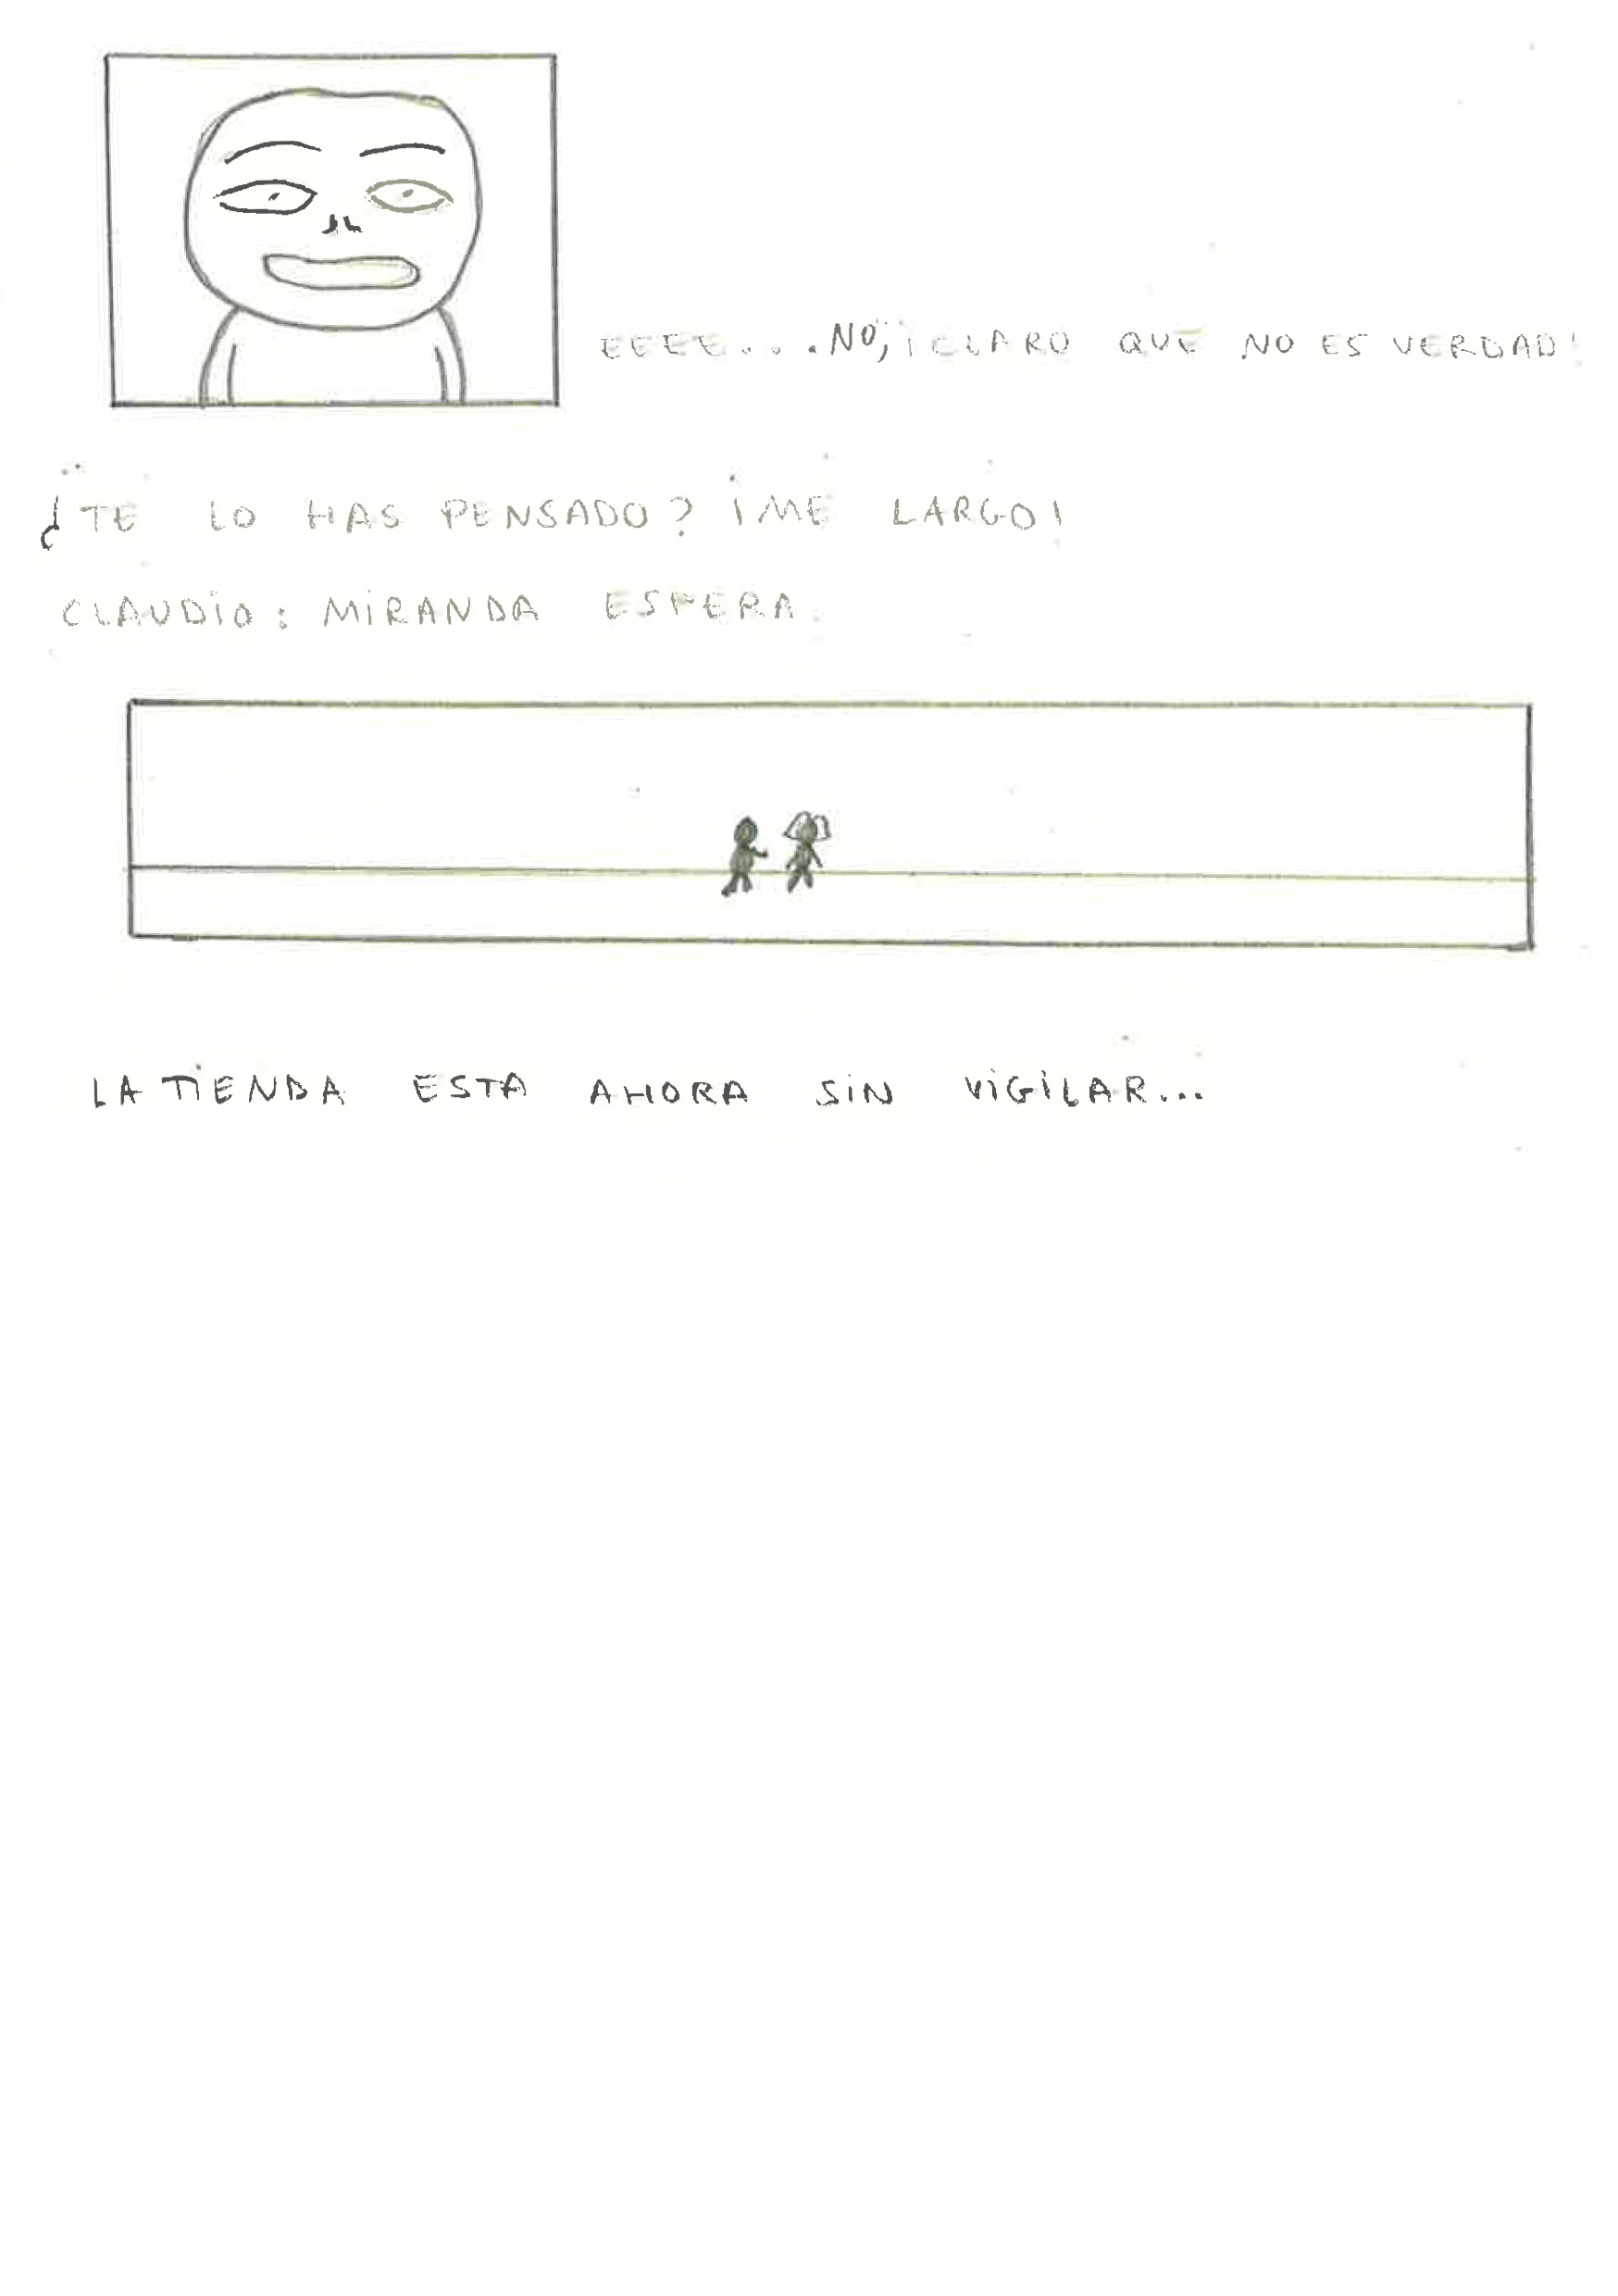 EEEE....NO, ¡CLARO QUE NO ES VERDAD!
¿TE LO HAS PENSADO? ¡ME LARGO!
CLAUDIO: MIRANDA ESPERA.
LA TIENDA ESTA AHORA SIN VIGILAR...